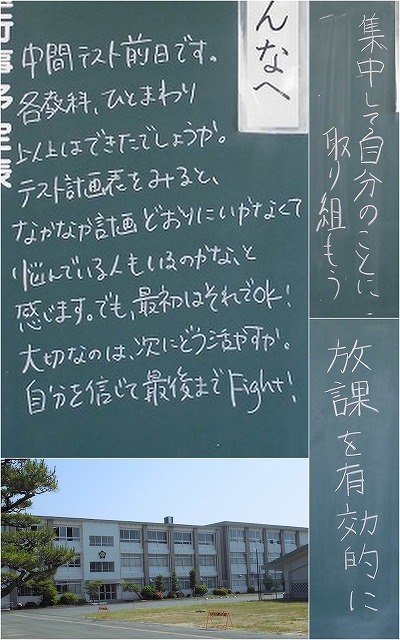 行事予定表
んなへ
中間テスト前日です。
各教科、ひとまわり
以上はできたでしょうか。
テスト計画表をみると、
なかなか計画どおりにいかなくて
悩んでいる人もいるのかな、と
感じます。でも、最初はそれでOK!
大切なのは、次にどう活やすか。
自分を信じて最後までFight!
集中して自分のことに
取り組もう
放課を有効的に